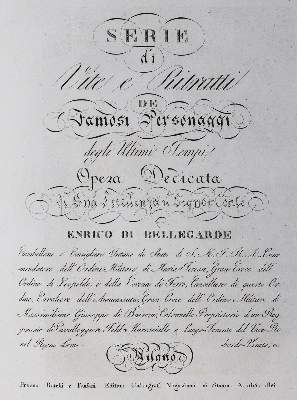 SERIE
di
Vite e Ritratti
DE
Famosi Personaggi
degli Ultimi Tempi
Opera Dedicata
A Sua Eccellenza il Signor Conte
ENRICO DI BELLEGARDE
Ciambellano e Consigliere Intimo di Stato di S. M. I. R. A. Com
mendatore dell' Ordine Militare di Maria Teresa, Gran Croce dell'
Ordine di Leopoldo, e della Corona di Ferro, Cancelliere di questo Or
dine, Cavaliere dell' Annunziata, Gran Croce dell' Ordine Militare di
Massimiliano Giuseppe di Baviera, Colonnello Proprietario d'un Reg
gimento di Cavalleggieri, Feld Maresciallo, e Luogo-Tenente del Vice-Re
nel Regno Lom bardo-Veneto, ec.
Milano
Batelli e Fanfani Editori